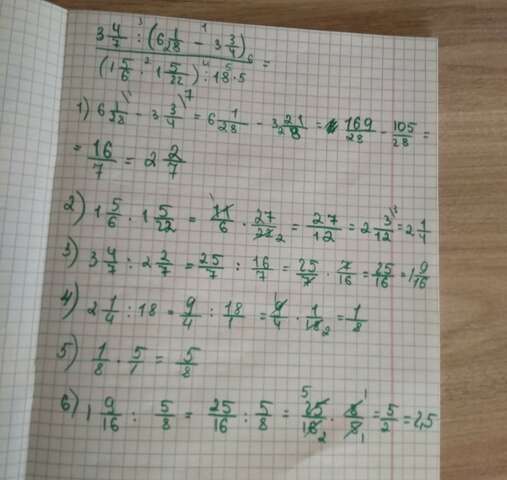 3 4/7 : (6 1/28 - 3 3/4)
(1 5/6 · 1 5/22) : 18 · 5 =
1) 6 1/28 - 3 3/4 = 6 1/28 - 3 21/28 = 169/28 - 105/28 =
= 16/7 = 2 2/7
2) 1 5/6 · 1 5/22 = 11/6 · 27/22 2 = 27/12 = 2 3/12 = 2 1/4
3) 3 4/7 : 2 2/7 = 25/7 : 16/7 = 25/7 · 7/16 = 25/16 = 1 9/16
4) 2 1/4 : 18 = 9/4 : 18/1 = 9/4 · 1/18 2 = 1/8
5) 1/8 · 5/1 = 5/8
6) 1 9/16 : 5/8 = 25/16 : 5/8 = 5 25/16 2 · 8/5 1 = 5/2 = 2,5